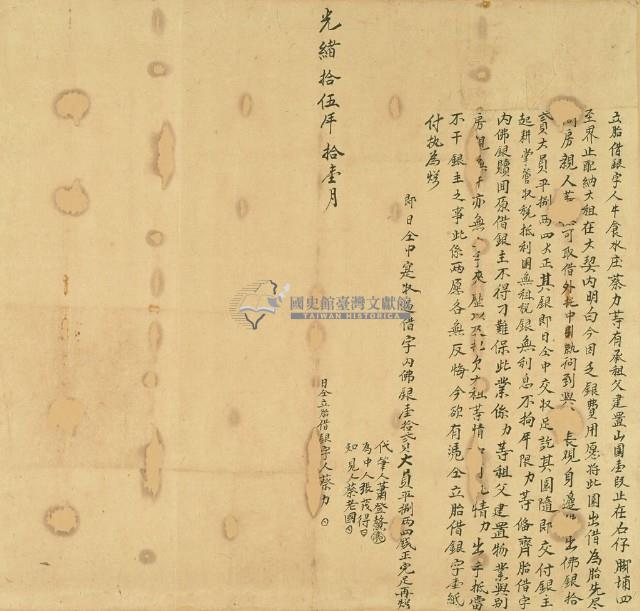 立胎借銀字人牛食水庄蔡力等有承租父建置山園壹段正在右仔腳埔四
至界止配納大租在大契內明白今因乏銀費用愿將此園出借為胎先尽
問房親人等可取借外托中引就向到與長現身邊出佛銀拾
弍員大員平捌兩四戈正其銀即日仝中交收足訖其園隨即交付銀主
起耕掌管收稅抵利園無租稅銀無利息不拘年限力等俻齊胎借字
內佛銀贖回原借銀主不得刁難保此業係力等祖父建置物業與別
房親無干亦無來歷以及拖欠大租等情如有情力出手抵當
不干銀主之事此係兩愿各無反悔今欲有憑仝立胎借銀字壹紙
付执為炤
即日仝中寔收借字內佛銀壹拾弍員大員平捌兩四戈正完足再炤
代筆人蕭登
為中人張茂得
知見人蔡老國
日仝立胎借銀字人蔡力
光緒拾伍年拾壹月
國史館臺灣文獻館
TAIWAN HISTORICA